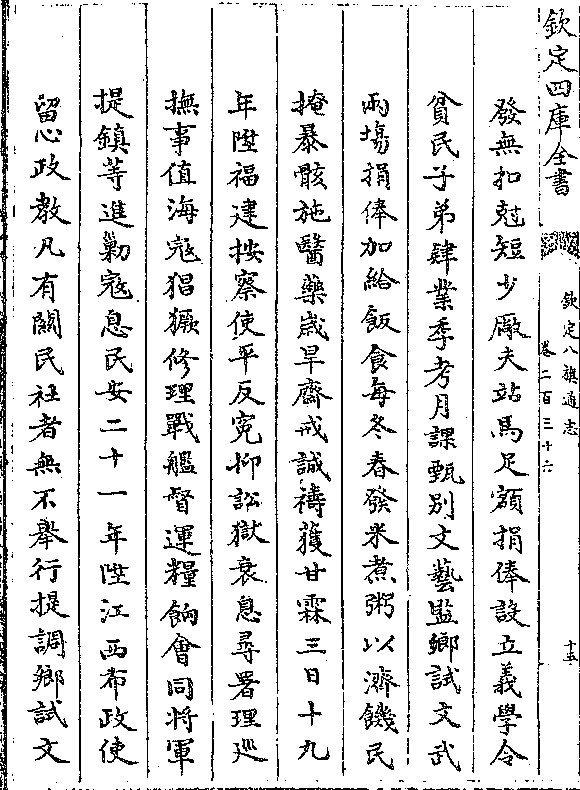 欽定四庫全書
欽定八旗通志
卷二百三十六
十五
發無扣尅短少廠夫站馬足額捐俸設立義學令
貧民子弟肄業季考月課甄别文藝監鄉試文武
兩塲捐俸加給飯食每冬春發米煮粥以濟饑民
掩暴骸施醫藥歲旱齋戒誠禱獲甘霖三日十九
年陞福建按察使平反寃抑訟獄衰息尋署理廵
撫事值海寇猖獗修理戰艦督運糧餉會同將軍
提鎮等進勦寇息民安二十一年陞江西布政使
留心政教凡有關民社者無不舉行提調鄉試文